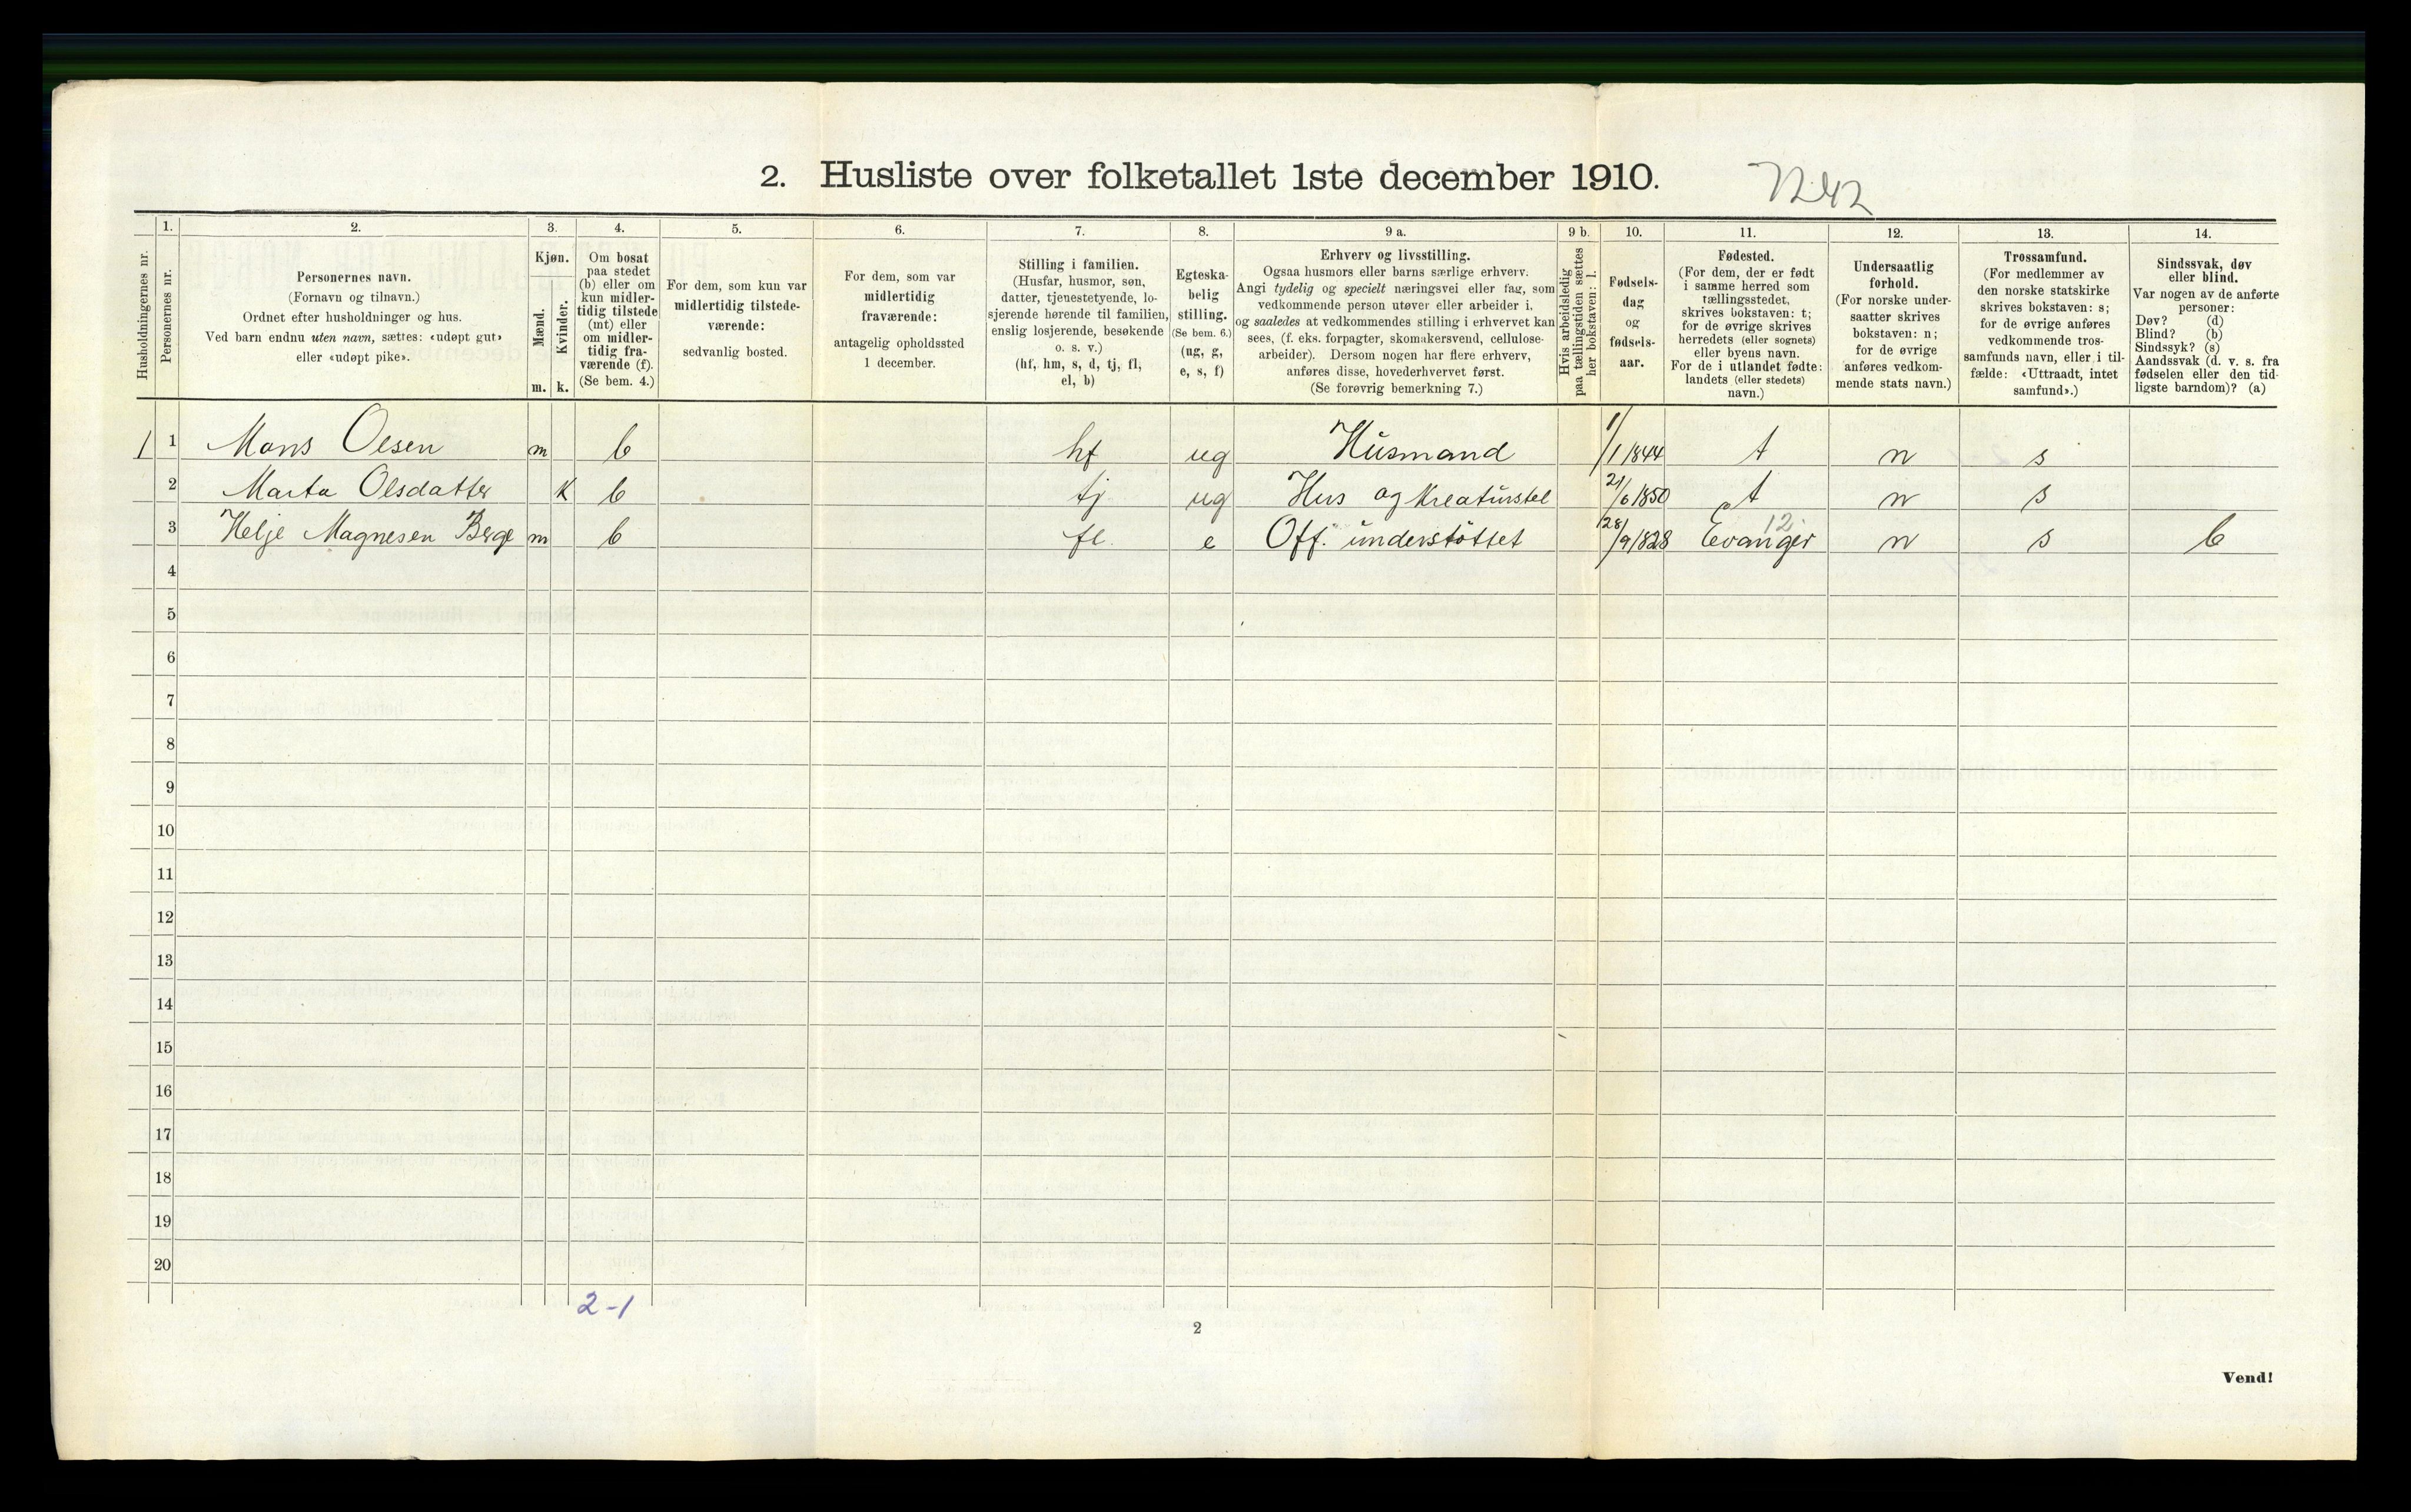 2. Husliste over folketallet 1ste december 1910.
1242
Husholdningernes nr.
1.
Personernes nr.
2.
Personernes navn.
(Fornavn og tilnavn.)
Ordnet efter husholdninger og hus.
Ved barn endnu uten navn, sættes: «udøpt gut»
eller «udøpt pike».
3.
Kjøn.
Mænd.
m.
Kvinder.
k.
4.
Om bosat
paa stedet
(b) eller om
kun midler-
tidig tilstede
(mt) eller
om midler-
tidig fra-
værende (f).
(Se bem. 4.)
5.
For dem, som kun var
midlertidig tilstede-
værende:
sedvanlig bosted.
6.
For dem, som var
midlertidig
fraværende:
antagelig opholdssted
1 december.
7.
Stilling i familien.
(Husfar, husmor, søn,
datter, tjenestetyende, lo-
sjerende hørende til familien,
enslig losjerende, besøkende
o. s. v.)
(hf, hm, s, d, tj, fl,
el, b)
8.
Egteska-
belig
stilling.
(Se bem. 6.)
(ug, g,
e, s, f)
9 a.
Erhverv og livsstilling.
Ogsaa husmors eller barns særlige erhverv.
Angi tydelig og specielt næringsvei eller fag, som
vedkommende person utøver eller arbeider i,
og saaledes at vedkommendes stilling i erhvervet kan
sees, (f. eks. forpagter, skomakersvend, cellulose-
arbeider). Dersom nogen har flere erhverv,
anføres disse, hovederhvervet først.
(Se forøvrig bemerkning 7.)
9 b.
Hvis arbeidsledig
paa tællingstiden sættes
her bokstaven: l.
10.
Fødsels-
dag
og
fødsels-
aar.
11.
Fødested.
(For dem, der er født
i samme herred som
tællingsstedet,
skrives bokstaven: t;
for de øvrige skrives
herredets (eller sognets)
eller byens navn.
For de i utlandet fødte:
landets (eller stedets)
navn.)
12.
Undersaatlig
forhold.
(For norske under-
saatter skrives
bokstaven: n;
for de øvrige
anføres vedkom-
mende stats navn.)
13.
Trossamfund.
(For medlemmer av
den norske statskirke
skrives bokstaven: s;
for de øvrige anføres
vedkommende tros-
samfunds navn, eller i til-
fælde: «Uttraadt, intet
samfund».)
14.
Sindssvak, døv
eller blind.
Var nogen av de anførte
personer:
Døv? (d)
Blind? (b)
Sindssyk? (s)
Aandssvak (d. v. s. fra
fødselen eller den tid-
ligste barndom)? (a)
1 1 Mons Olsen m b hf ug Husmand 1/1 1844 t n s
2 Marta Olsdatter K b tj ug Hus og Kreaturstel 21/6 1850 t n s
12
3 Helje Magnesen Berge m b fl. e Off. understøttet 28/9 1828 Evanger n s b
4
5
6
7
8
9
10
11
12
13
14
15
16
17
18
19
20
2-1
2
Vend!